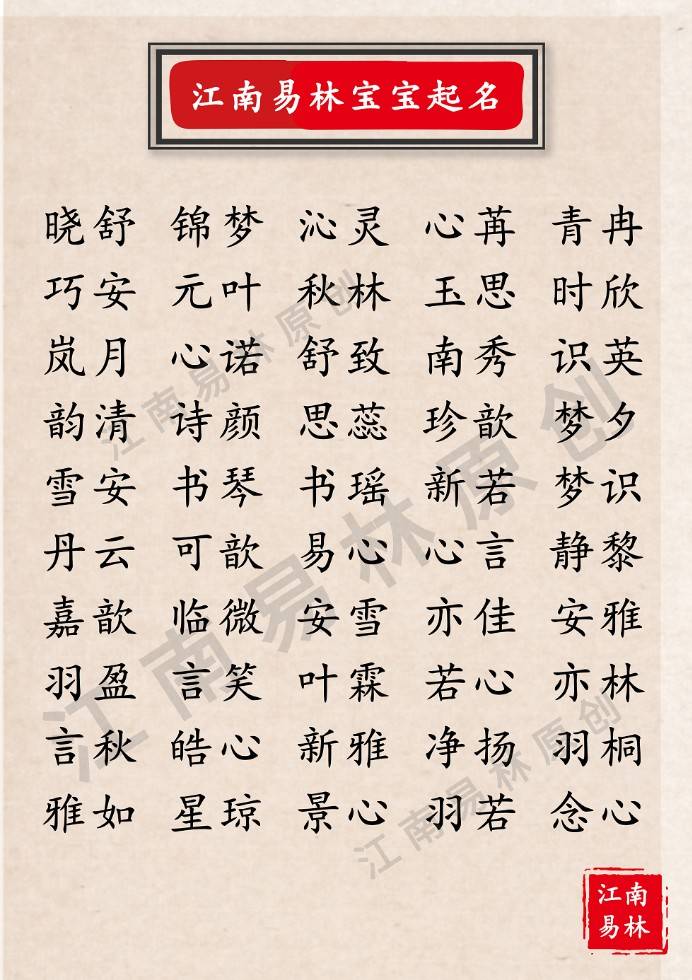 江南易林宝宝起名
晓舒 锦梦 沁灵 心苒 青冉
巧安 元叶 秋林 玉思 时欣
岚月 心诺 舒致 南秀 识英
韵清 诗颜 思蕊 珍歆 梦夕
雪安 书琴 书瑶 新若 梦识
丹云 可歆 易心 心言 静黎
嘉歆 临微 安雪 亦佳 安雅
羽盈 言笑 叶霖 若心 亦林
言秋 皓心 新雅 净扬 羽桐
雅如 星琼 景心 羽若 念心
江南易林原创
江南易林原创
江南易林原创
江南
易林